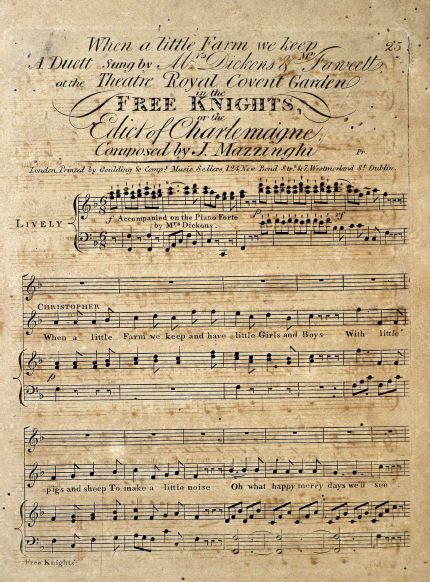 When a little Farm we keep
25
A Duett Sung by Mrs. Dickons & Mr. Fawcett
at the Theatre Royal Covent Garden
in the
FREE KNIGHTS,
or the
Edict of Charlemagne,
Composed by J. Mazzinghi
Pr.
London, Printed by Goulding & Compy. Music Sellers, 124 New Bond Str. & 7, Westmorland St. Dublin.
LIVELY
Accompanied on the Piano Forte
by Mrs. Dickons.
p
rf
CHRISTOPHER
When a little Farm we keep and have little Girls and Boys With little
p
pigs and sheep To make a little noise Oh what happy merry days we'll see
Free Knights